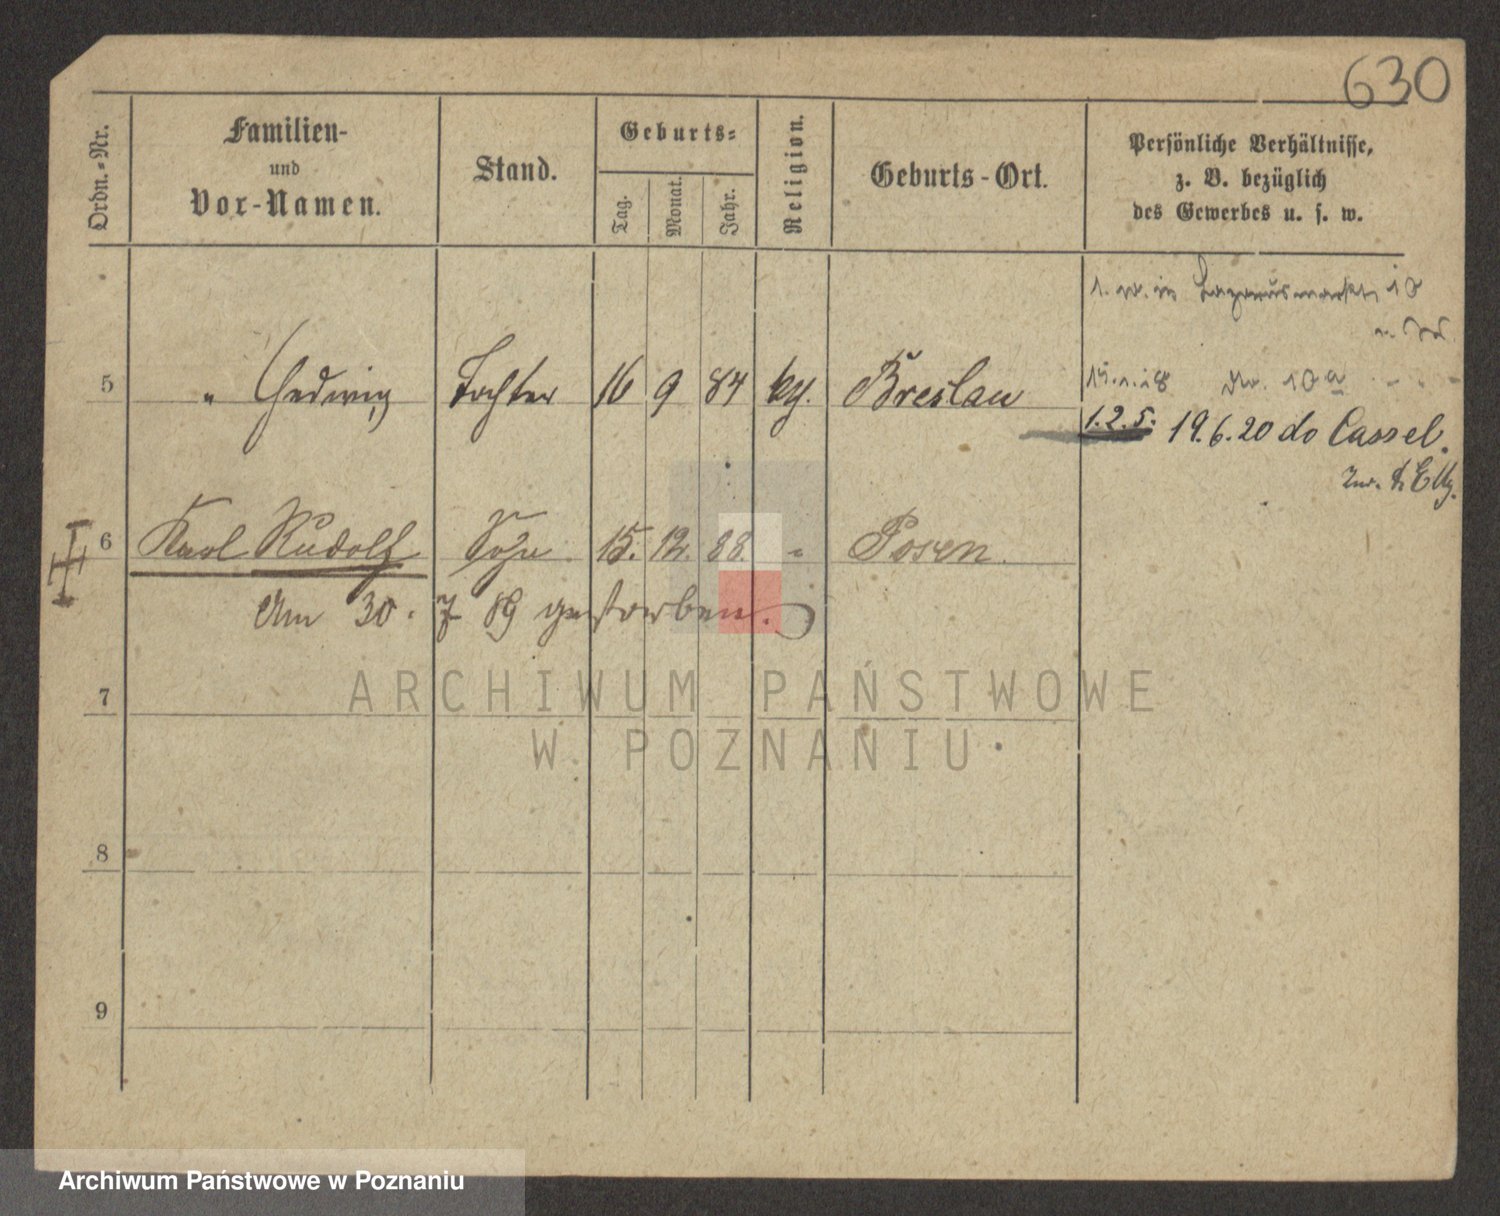 630
Ordn.-Nr.
Familien-
und
Vor-Namen.
Stand.
Geburts-
Tag.
Monat.
Jahr.
Religion.
Geburts-Ort.
Persönliche Verhältnisse,
z. B. bezüglich
des Gewerbes u. s. w.
10
5 " Hedwig Tochter 16 9 84 Breslau
10a
1.2.5. 19.6.20 do Cassel.
6 Karl Rudolf Sohn 15. 12. 88. " Posen.
Am 30. 7 89 gestorben.
7
8
9
ARCHIWUM PAŃSTWOWE
W POZNANIU
Archiwum Państwowe w Poznaniu